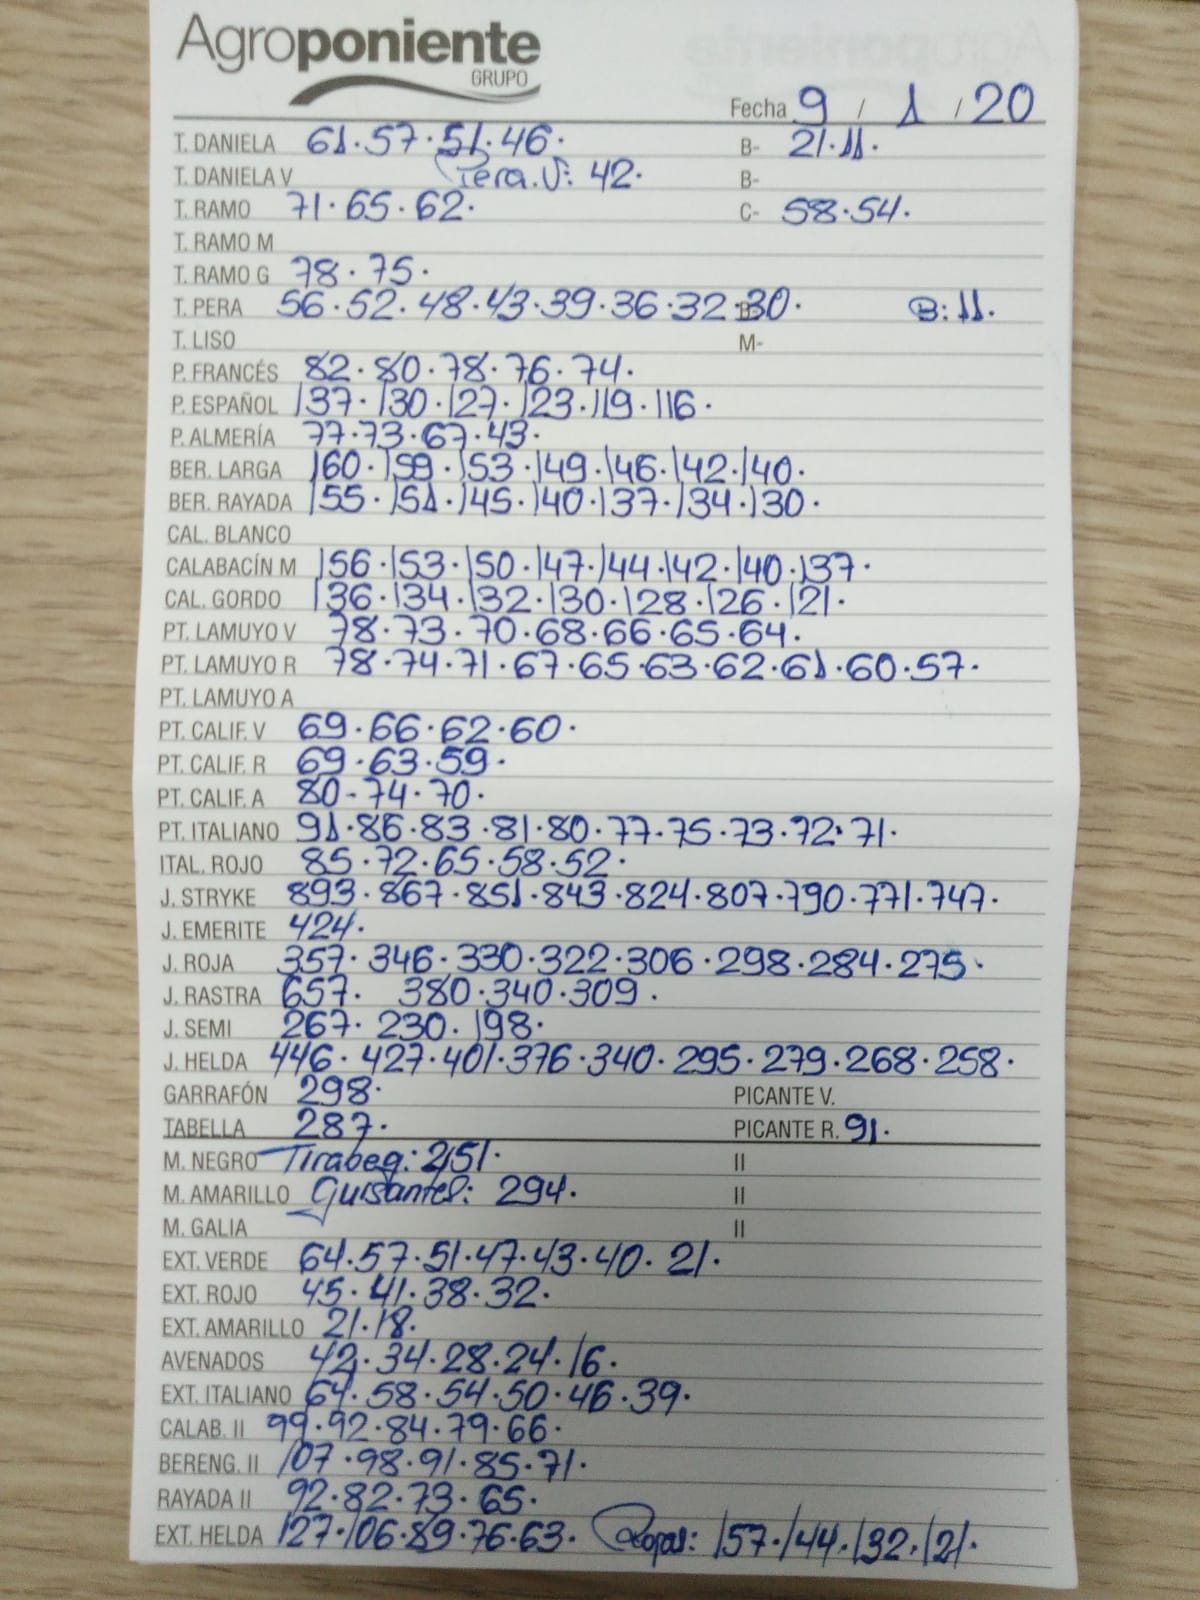 Agroponiente
GRUPO
Fecha 9 / 1 / 20
T. DANIELA 61.57.51.46. B- 21.11.
T. DANIELA V Pera.V: 42. B-
T. RAMO 71.65.62. C- 58.54.
T. RAMO M
T. RAMO G 78.75.
T. PERA 56.52.48.43.39.36.32.30. B- B:11.
T. LISO M-
P. FRANCÉS 82.80.78.76.74.
P. ESPAÑOL 137.130.127.123.119.116.
P. ALMERÍA 77.73.67.43.
BER. LARGA 160.159.153.149.146.142.140.
BER. RAYADA 155.151.145.140.137.134.130.
CAL. BLANCO
CALABACÍN M 156.153.150.147.144.142.140.137.
CAL. GORDO 136.134.132.130.128.126.121.
PT. LAMUYO V 78.73.70.68.66.65.64.
PT. LAMUYO R 78.74.71.67.65.63.62.61.60.57.
PT. LAMUYO A
PT. CALIF. V 69.66.62.60.
PT. CALIF. R 69.63.59.
PT. CALIF. A 80-74.70.
PT. ITALIANO 91.86.83.81.80.77.75.73.72.71.
ITAL. ROJO 85.72.65.58.52.
J. STRYKE 893.867.851.843.824.807.790.771.747.
J. EMERITE 424.
J. ROJA 357.346.330.322.306.298.284.275.
J. RASTRA 657. 380.340.309.
J. SEMI 267.230.198.
J. HELDA 446.427.401.376.340.295.279.268.258.
GARRAFÓN 298. PICANTE V.
TABELLA 287. PICANTE R. 91.
M. NEGRO Tirabeq: 251. II
M. AMARILLO Guisantes: 294. II
M. GALIA II
EXT. VERDE 64.57.51.47.43.40.21.
EXT. ROJO 45.41.38.32.
EXT. AMARILLO 21.18.
AVENADOS 42.34.28.24.16.
EXT. ITALIANO 64.58.54.50.46.39.
CALAB. II 99.92.84.79.66.
BERENG. II 107.98.91.85.71.
RAYADA II 92.82.73.65.
EXT. HELDA 127.106.89.76.63. 157.144.132.121.